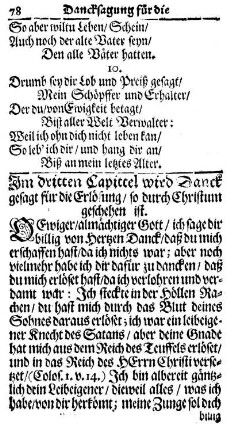 78 Dancksagung für die
So aber wiltu Leben/ Schein/
Auch noch der alte Vater seyn/
Den alle Väter hatten.
10.
Drumb sey dir Lob und Preiß gesagt/
Mein Schöpffer und Erhalter/
Der du/ von Ewigkeit betagt/
Bist aller Welt Verwalter:
Weil ich ohn dich nicht leben kan/
So leb' ich dir/ und hang dir an/
Biß an mein letztes Alter.
Im dritten Capittel wird Danck
gesagt für die Erlösung/ so durch Christum
geschehen ist.
O Ewiger/ almächtiger Gott/ ich sage dir
billig von Hertzen Danck/ daß du mich
erschaffen hast/ da ich nichts war; aber noch
vielmehr habe ich dir dafür zu dancken/ daß
du mich erlöset hast/ da ich verlohren und ver-
damt war: Ich steckte in der Höllen Ra-
chen/ du hast mich durch das Blut deines
Sohnes daraus erlöset; ich war ein leibeige-
ner Knecht des Satans/ aber deine Gnade
hat mich aus dem Reich des Teuffels erlöset/
und in das Reich des HErrn Christi verse-
tzet/ (Colos. 1. v. 14.) Ich bin albereit gäntz-
lich dein Leibeigener/ dieweil alles/ was ich
habe/ von dir herkömt; meine Zunge sol dich
billig